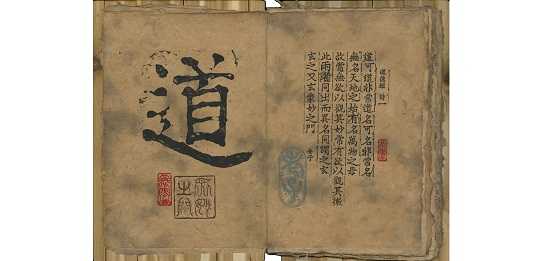 道德經 詩一
道可道非常道名可名非常名
無名天地之始有名萬物之母
故常無欲以觀其妙常有欲以觀其徼
此兩者同出而異名同謂之玄
玄之又玄衆妙之門 老子
道
眾妙之門